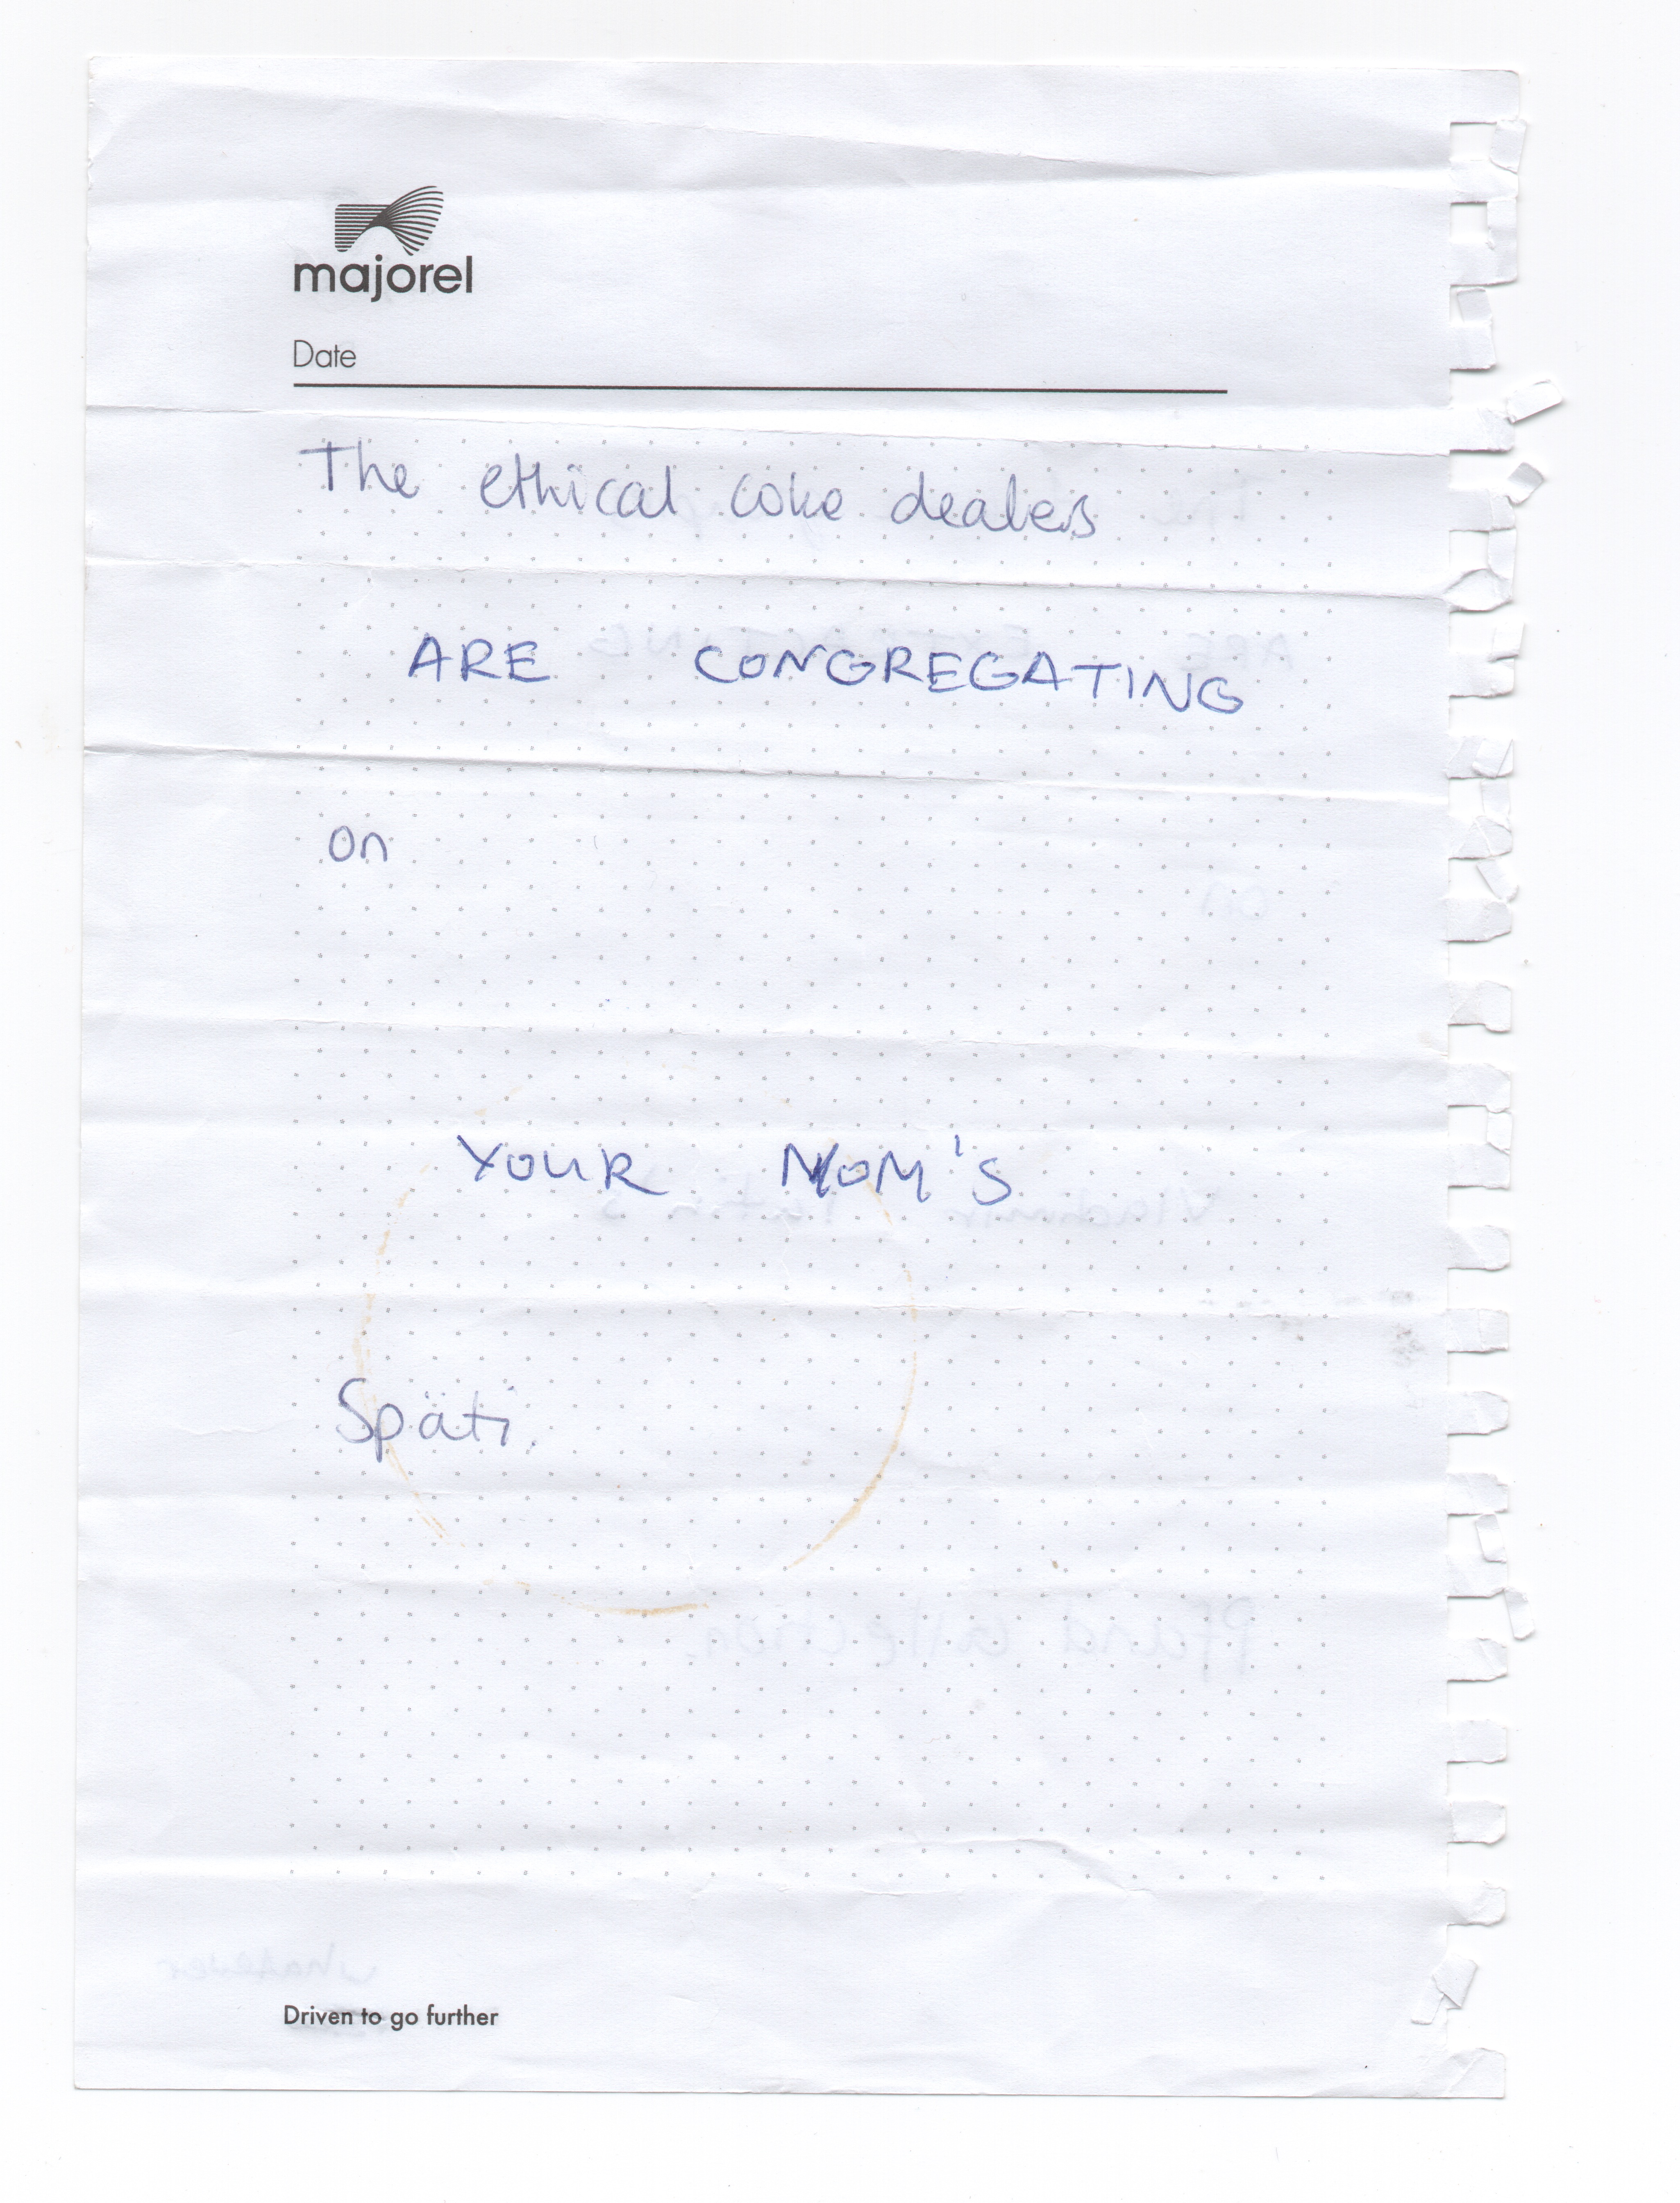 majorel
Date
The ethical coke dealers
ARE CONGREGATING
on
YOUR MOM'S
Späti.
Driven to go further